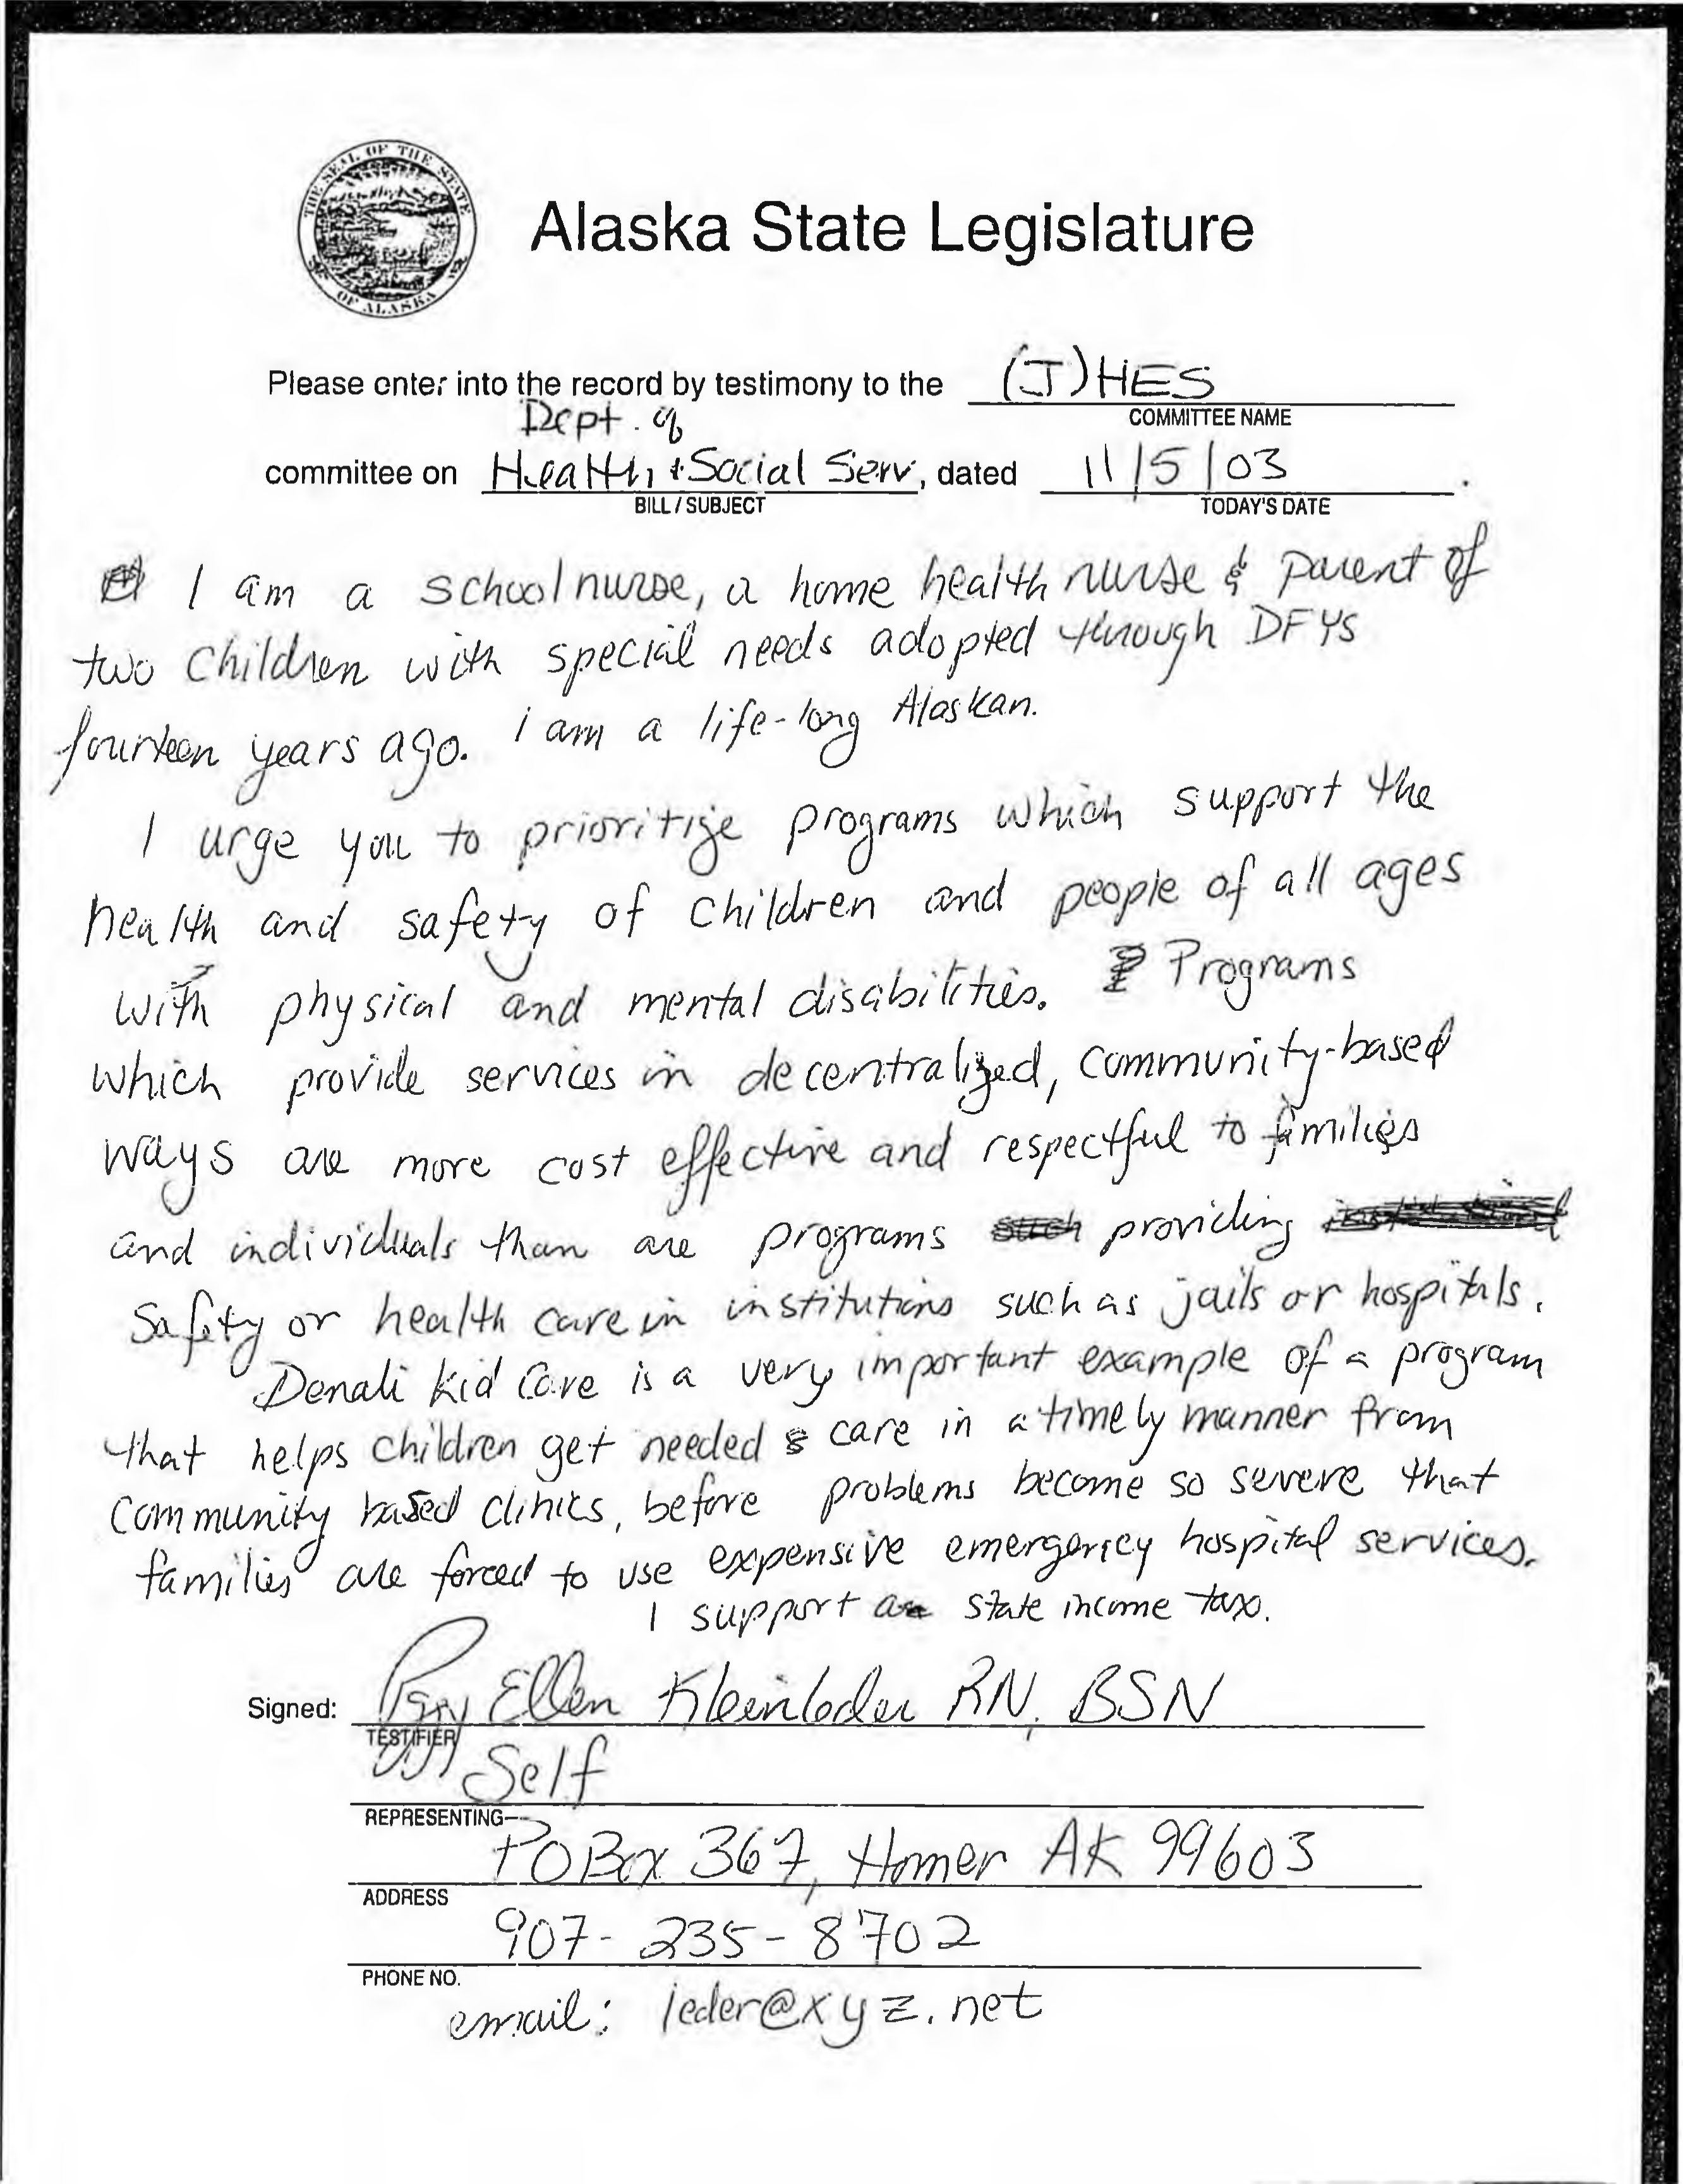 THE SEAL OF THE STATE
OF ALASKA
Alaska State Legislature
Please enter into the record by testimony to the (J) HES
COMMITTEE NAME
Dept. of
committee on Health & Social Serv, dated 11/5/03.
BILL / SUBJECT TODAY'S DATE
I am a school nurse, a home health nurse & parent of
two children with special needs adopted through DFYS
fourteen years ago. I am a life-long Alaskan.
I urge you to prioritize programs which support the
health and safety of children and people of all ages
with physical and mental disabilities. Programs
which provide services in decentralized, community-based
ways are more cost effective and respectful to families
and individuals than are programs such providing
safety or health care in institutions such as jails or hospitals.
Denali Kid Care is a very important example of a program
that helps children get needed care in a timely manner from
community based clinics, before problems become so severe that
families are forced to use expensive emergency hospital services.
I support a state income tax.
Signed: Ellen RN, BSN
TESTIFIER
Self
REPRESENTING
PO Box 367, Homer AK 99603
ADDRESS
907-235-8702
PHONE NO.
email: leder@xyz.net